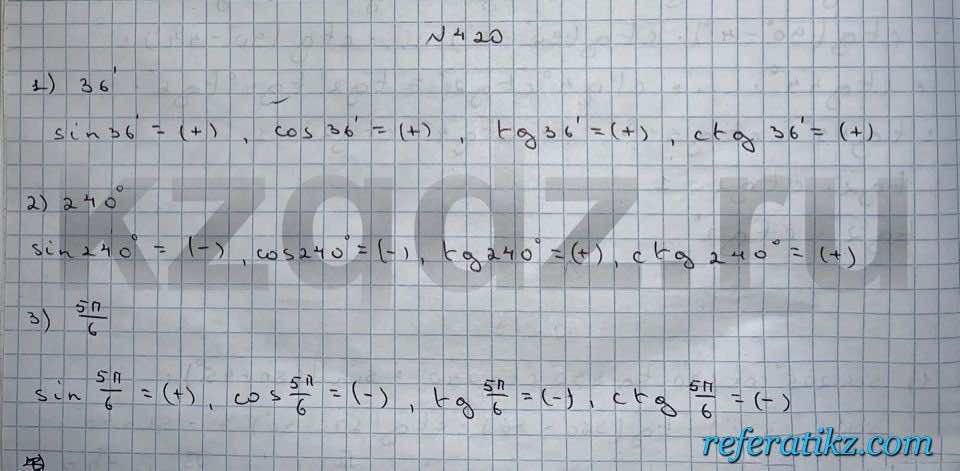 N420
1) 36'
sin36' = (+), cos36' = (+), tg36' = (+), ctg 36' = (+)
2) 240°
sin240° = (-), cos240° = (-), tg240° = (+), ctg240° = (+)
3) 5π/6
sin 5π/6 = (+), cos 5π/6 = (-), tg 5π/6 = (-), ctg 5π/6 = (-)
kzgdz.ru
referatikz.com